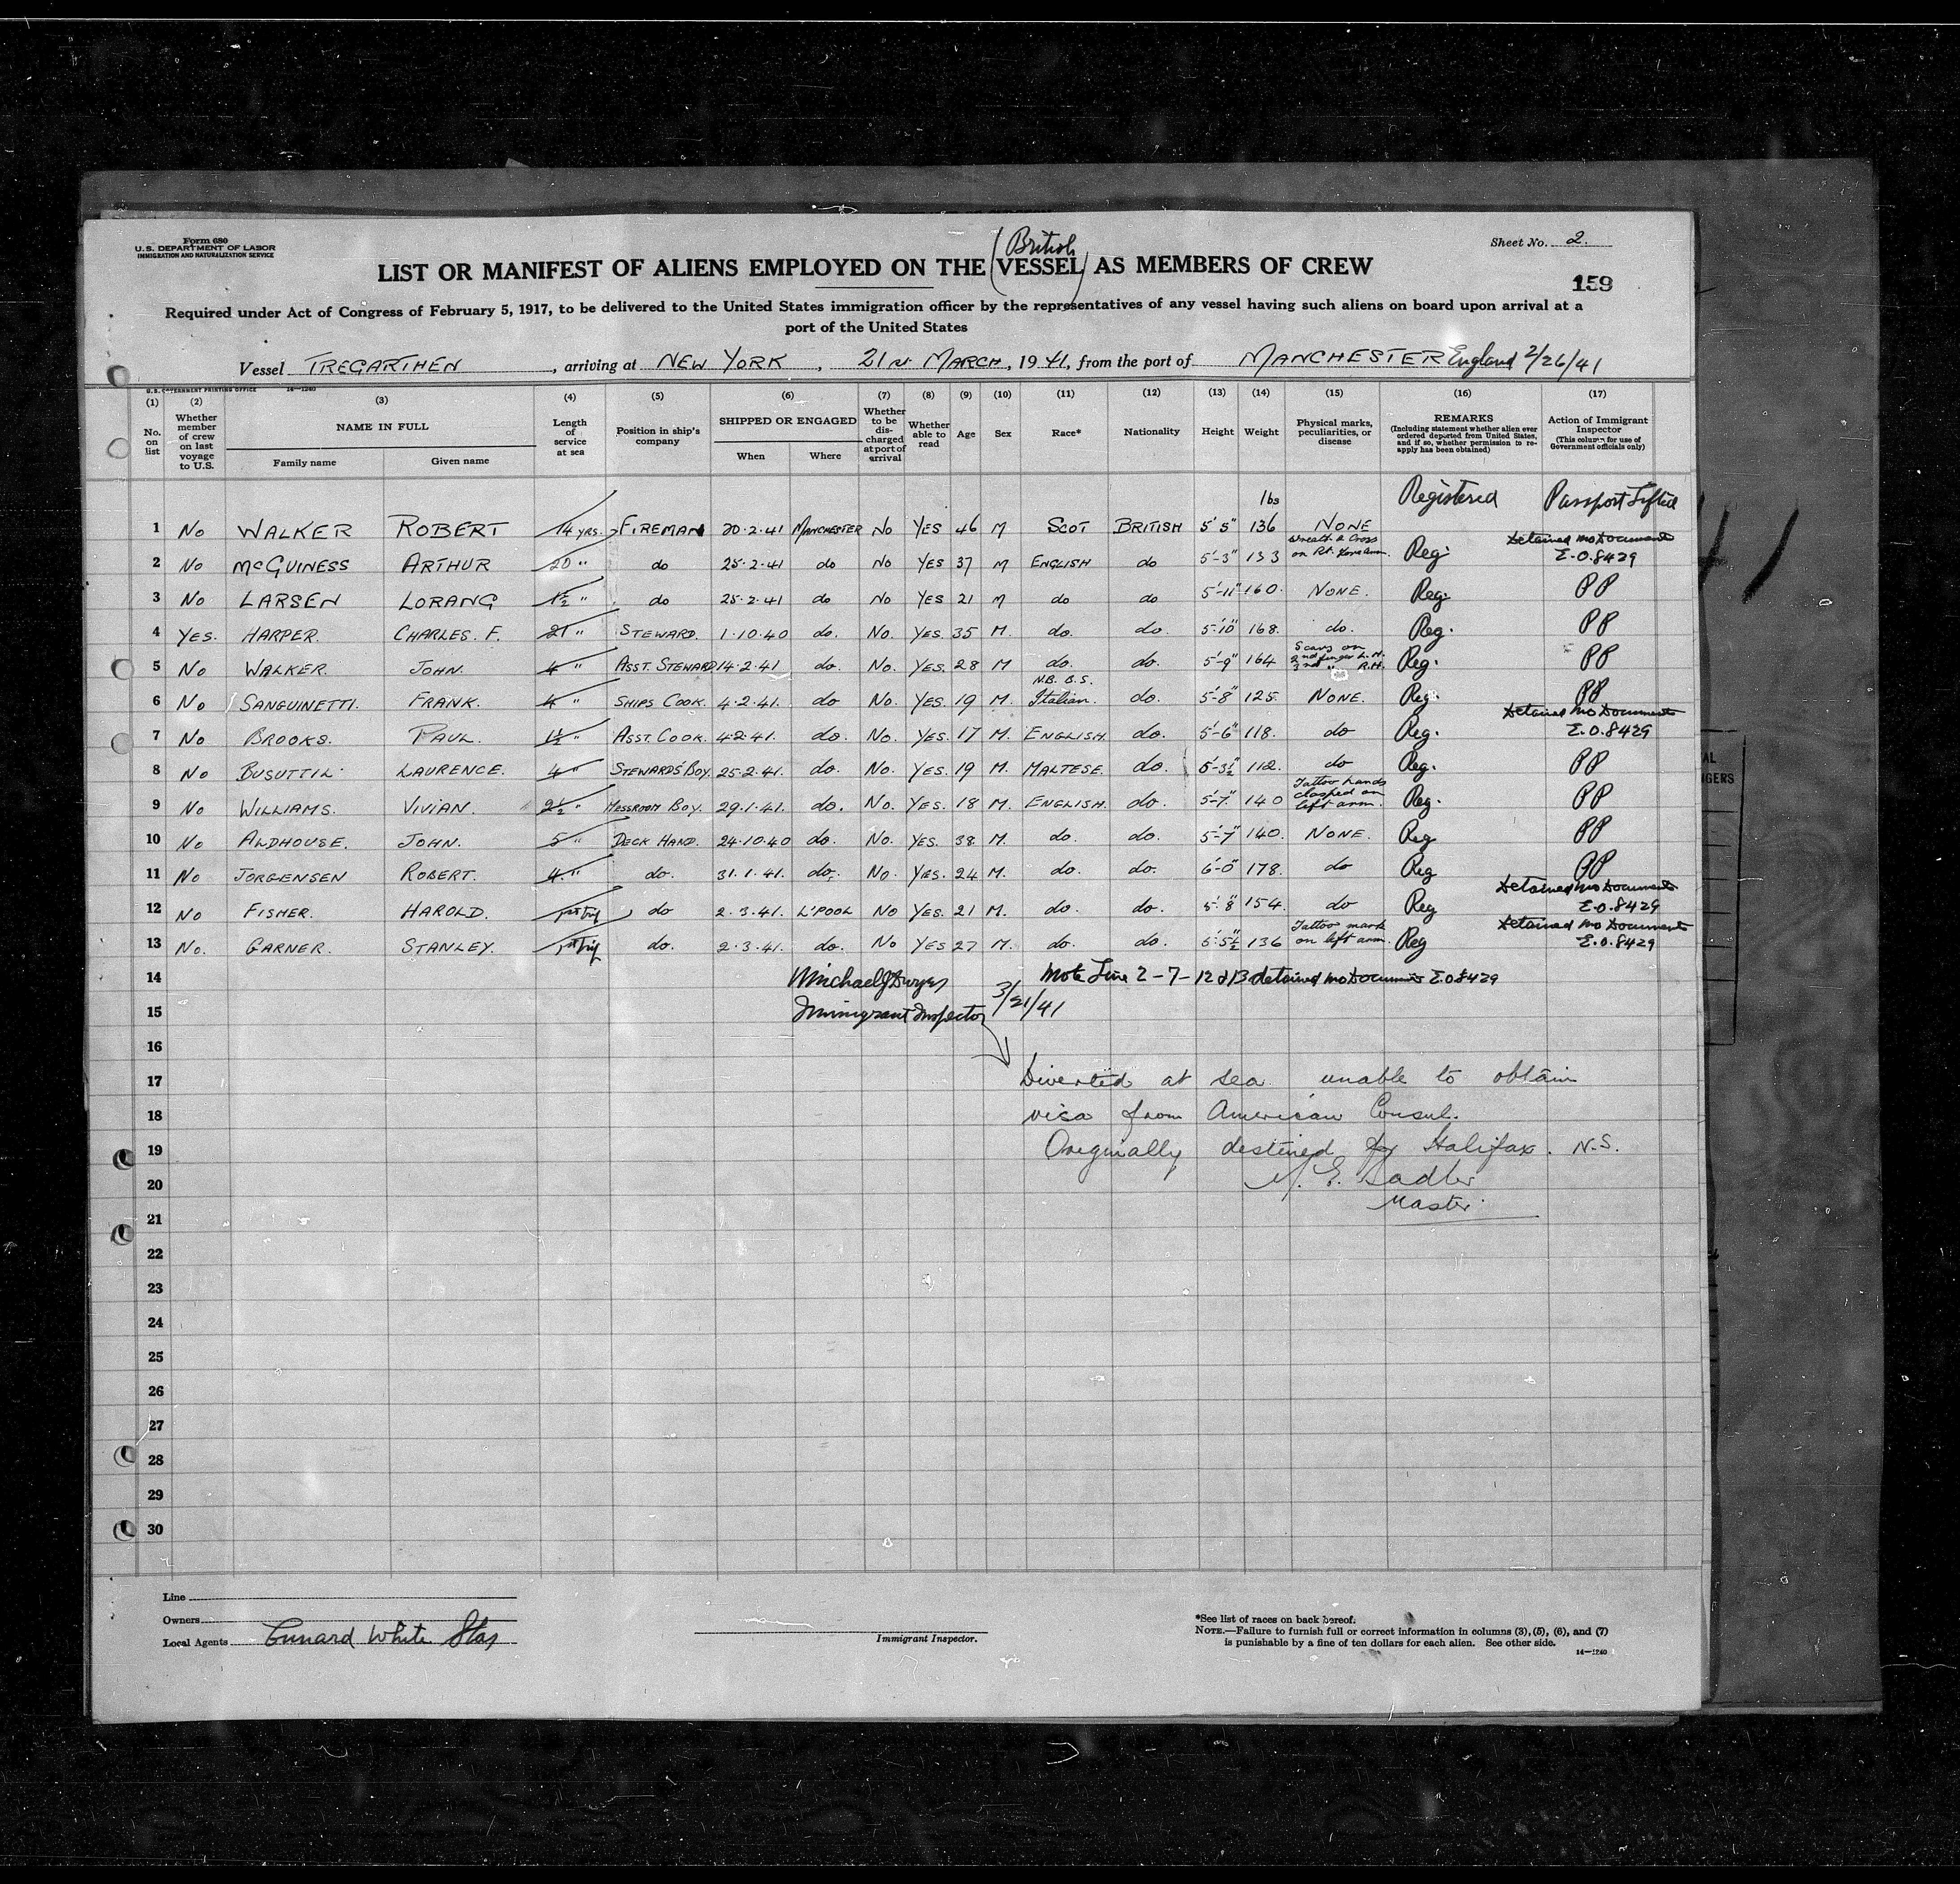 Form 680
U.S. DEPARTMENT OF LABOR
IMMIGRATION AND NATURALIZATION SERVICE
Sheet No. 2.
159
British
LIST OR MANIFEST OF ALIENS EMPLOYED ON THE (VESSEL) AS MEMBERS OF CREW
Required under Act of Congress of February 5, 1917, to be delivered to the United States immigration officer by the representatives of any vessel having such aliens on board upon arrival at a
port of the United States
Vessel TREGARTHEN, arriving at NEW YORK, 21st MARCH, 1941, from the port of MANCHESTER England 2/26/41
U.S. GOVERNMENT PRINTING OFFICE 14—1240
(1) (2) (3) (4) (5) (6) (7) (8) (9) (10) (11) (12) (13) (14) (15) (16) (17)
No. on list
Whether member of crew on last voyage to U.S.
NAME IN FULL
Family name
Given name
Length of service at sea
Position in ship's company
SHIPPED OR ENGAGED
When
Where
Whether to be discharged at port of arrival
Whether able to read
Age
Sex
Race*
Nationality
Height
Weight
Physical marks, peculiarities, or disease
REMARKS
(Including statement whether alien ever ordered deported from United States, and if so, whether permission to reapply has been obtained)
Action of Immigrant Inspector
(This column for use of Government officials only)
lbs Registered Passport Lifted
1 No WALKER ROBERT 14 YRS. FIREMAN 20.2.41 MANCHESTER No YES 46 M SCOT BRITISH 5'5" 136 NONE
2 No McGUINESS ARTHUR 20 " do 25.2.41 do No YES 37 M ENGLISH do 5'-3" 133 Wreath & Cross on Rt. Forearm. Reg. Detained No Documents E.O.8429
3 No LARSEN LORANG 1½ " do 25.2.41 do No YES 21 M do do 5'-11" 160. NONE. Reg. PP
4 YES. HARPER. CHARLES. F. 21 " STEWARD. 1.10.40 do. No. YES. 35 M. do. do. 5'-10" 168. do. Reg. PP
5 No WALKER. JOHN. 4 " ASST. STEWARD 14.2.41 do. No. YES. 28 M do. do. 5'-9" 164 Scars on 2nd finger L.H. 3rd " R.H. Reg. PP
6 No SANGUINETTI. FRANK. 4 " SHIPS COOK. 4.2.41. do No. YES. 19 M. N.B. B.S. Italian. do. 5'-8" 125. NONE. Reg. PP
7 No BROOKS. PAUL. 1½ " ASST. COOK. 4.2.41. do. No. YES. 17 M. ENGLISH. do. 5'-6" 118. do Reg. Detained No Documents E.O.8429
8 No BUSUTTIL LAURENCE. 4 " STEWARDS' BOY. 25.2.41. do. No. YES. 19 M. MALTESE. do. 5'-3½" 112. do Reg. PP
9 No WILLIAMS. VIVIAN. 2½ " MESSROOM BOY. 29.1.41. do. No. YES. 18 M. ENGLISH. do. 5'-7" 140 Tattoo hands clasped on left arm. Reg. PP
10 No ALDHOUSE. JOHN. 5 " DECK HAND. 24.10.40 do. No. YES. 38 M. do. do. 5'-7" 140. NONE. Reg PP
11 No JORGENSEN ROBERT. 4. " do. 31.1.41. do. No. YES. 24 M. do. do. 6'-0" 178. do Reg PP
12 No FISHER. HAROLD. 1st trip do 2.3.41. L'POOL No YES. 21 M. do. do. 5'-8" 154. do Reg Detained No Documents E.O.8429
13 No. GARNER. STANLEY. 1st trip do. 2.3.41. do. No YES 27 M. do. do. 136 Tattoo mark on left arm. Reg Detained No Documents E.O.8429
14 Michael J Dwyer Note Line 2-7-12 & 13 detained no Documents E.O.8429
15 Immigrant Inspector 3/21/41
16
17 Diverted at sea unable to obtain
18 visa from American Consul.
19 Originally destined for Halifax. N.S.
20 Sadler
21 Master
22
23
24
25
26
27
28
29
30
Line
Owners
Local Agents Cunard White Star
Immigrant Inspector.
*See list of races on back hereof.
NOTE.—Failure to furnish full or correct information in columns (3), (5), (6), and (7)
is punishable by a fine of ten dollars for each alien. See other side.
14—1240